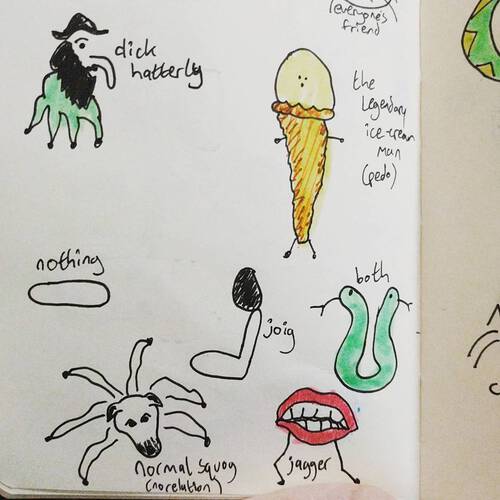 (everyone's
friend
dick
hatterly
the
legendary
ice-cream
man
(pedo)
nothing
joig
both
normal squog
(no relation)
jagger